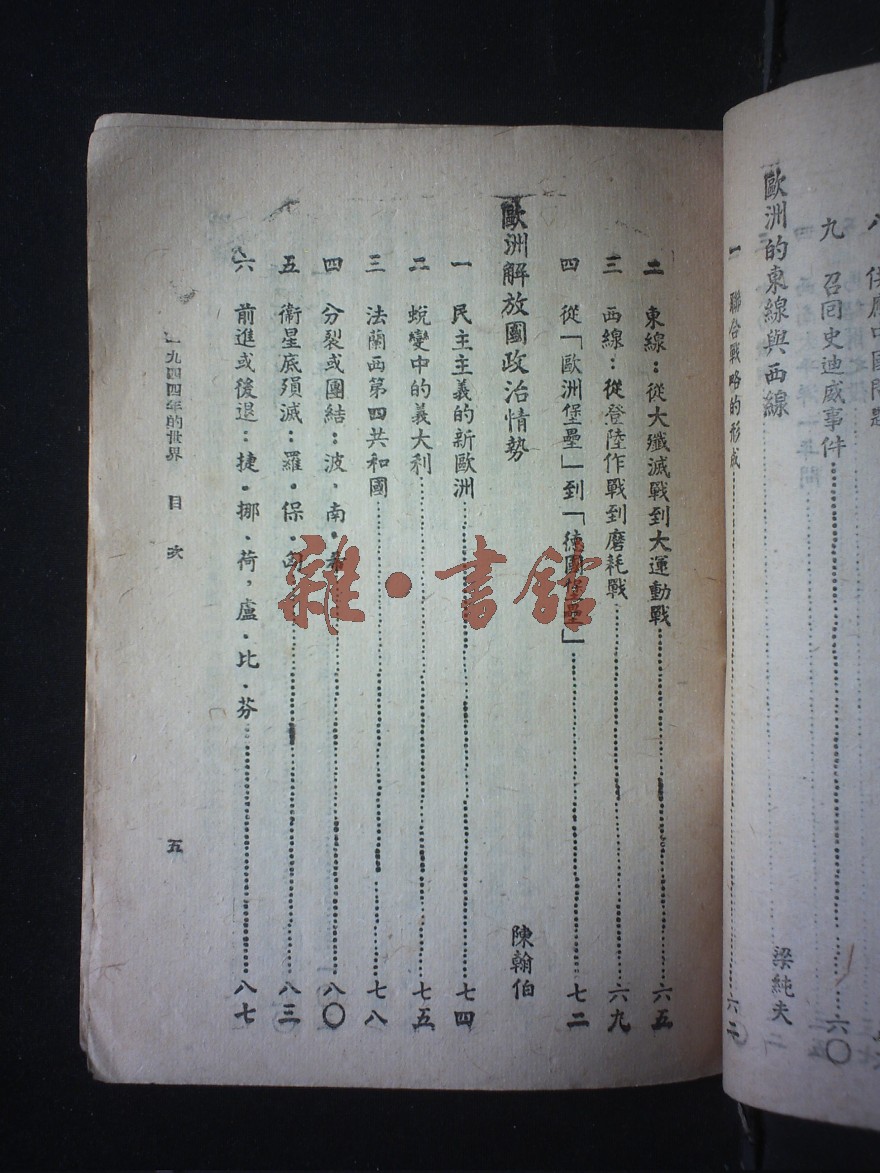 九 召回史迪威事件……六〇
歐洲的東線與西線 梁純夫
一 聯合戰略的形成……六二
二 東線：從大殲滅戰到大運動戰……六五
三 西線：從登陸作戰到磨耗戰……六九
四 從「歐洲堡壘」到「德國堡壘」……七二
歐洲解放國政治情勢 陳翰伯
一 民主主義的新歐洲……七四
二 蛻變中的義大利……七五
三 法蘭西第四共和國……七八
四 分裂或團結：波、南・希……八〇
五 衞星底殞滅：羅・保・匈……八三
六 前進或後退：捷・挪、荷，盧・比・芬……八七
一九四四年的世界 目次 五
雜・書館